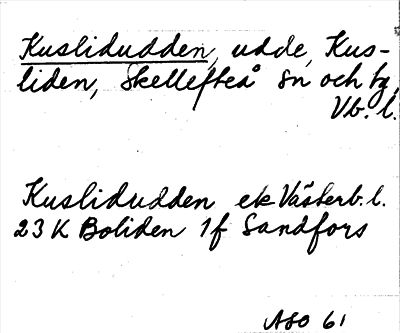 Kuslidudden, udde, Kus-
liden, Skellefteå sn och tg,
Vb. l.
Kuslidudden ek Västerb. l.
23 K Boliden 1f Sandfors
ASO 61